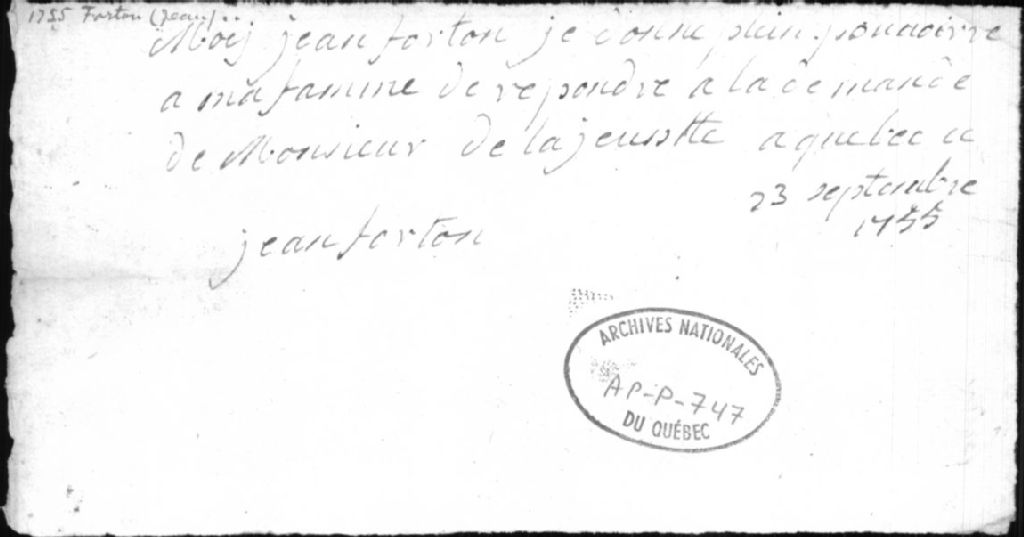 1755 Forton (Jean)..
Moij jean forton je donne plein pouvoirre
a ma famme de repondre a la demande
de Monsieur de lajeusstte a quebec ce
23 septembre
1755
jean forton
ARCHIVES NATIONALES
AP-P-747
DU QUÉBEC